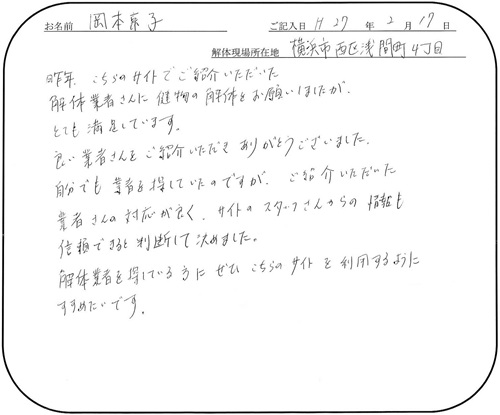 お名前 岡本京子 ご記入日 H27 年 2 月 17 日
解体現場所在地 横浜市西区浅間町4丁目
昨年 こちらのサイトでご紹介いただいた
解体業者さんに 建物の解体をお願いしましたが、
とても満足しています。
良い業者さんをご紹介いただき ありがとうございました。
自分でも業者を探していたのですが、ご紹介いただいた
業者さんの対応が良く、サイトのスタッフさんからの情報も
信頼できると判断して決めました。
解体業者を探している方に ぜひ こちらのサイトを利用するように
すすめたいです。